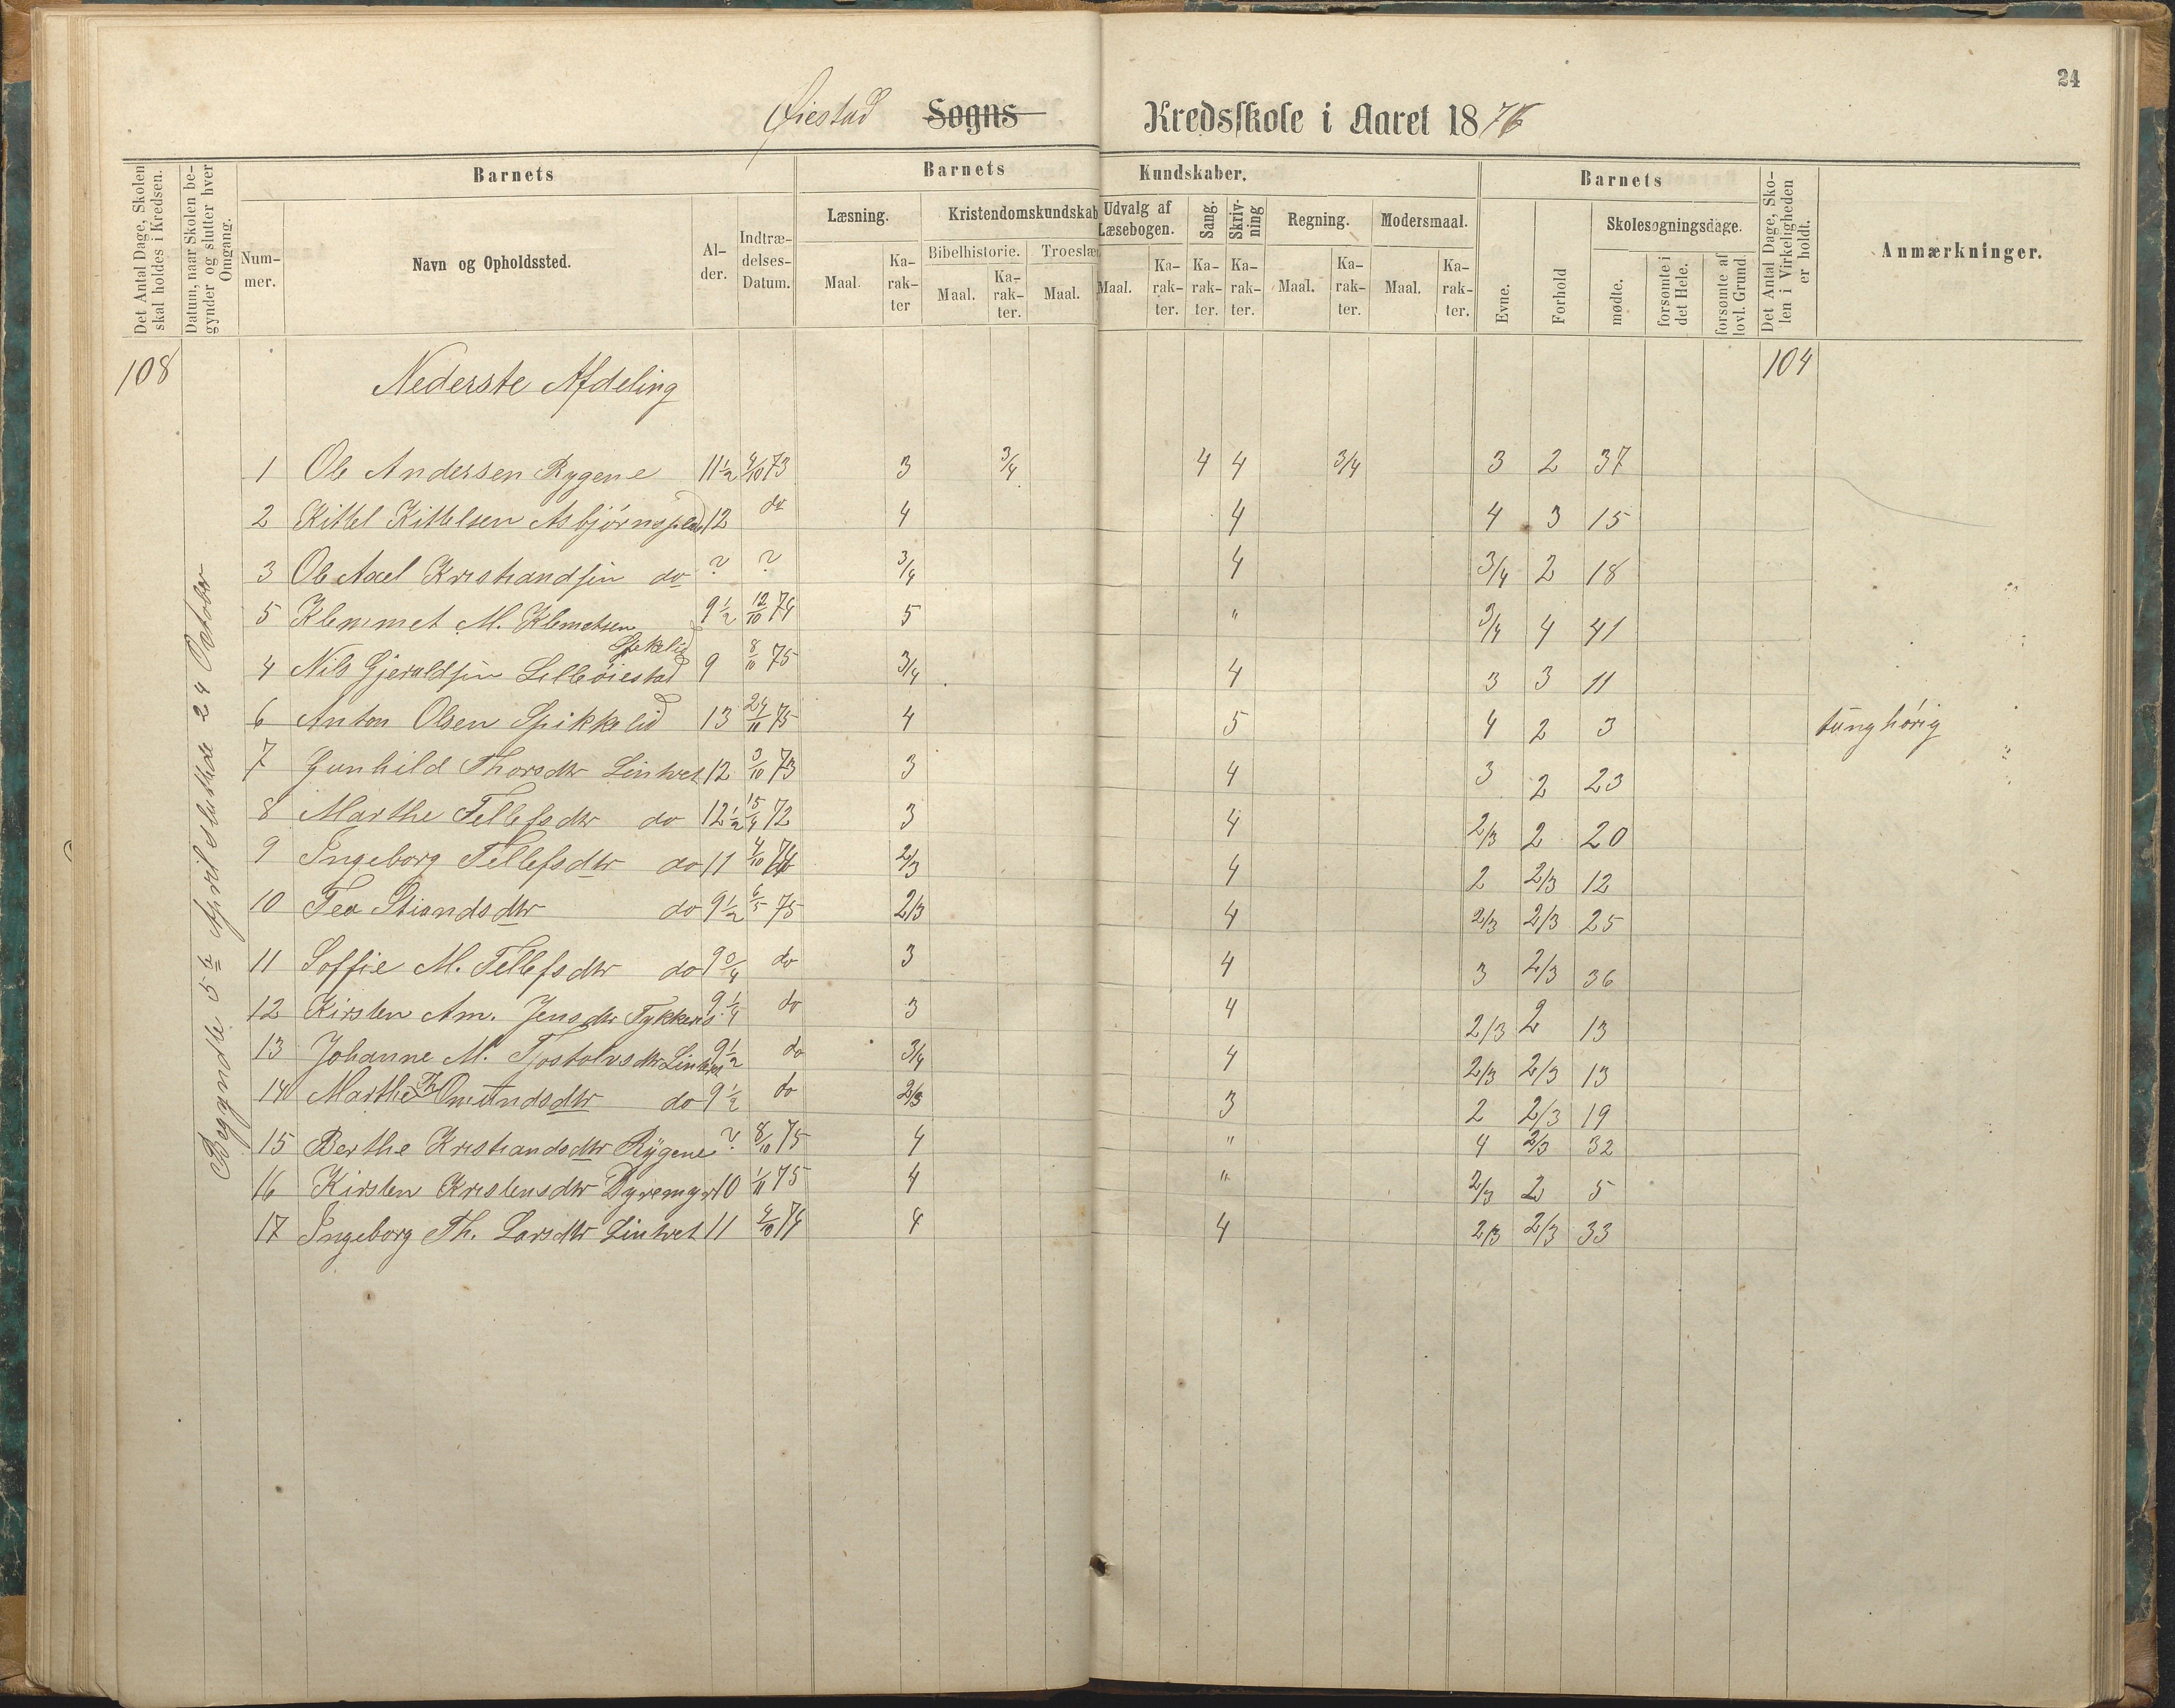 24
Øiestad Sogns Kredsskole i Aaret 1876
Det Antal Dage, Skolen skal holdes i Kredsen.
Datum, naar Skolen begynder og slutter hver Omgang.
Barnets
Nummer.
Navn og Opholdssted.
Alder.
Indtrædelses-Datum.
Barnets Kundskaber.
Læsning.
Maal.
Karakter
Kristendomskundskab
Bibelhistorie.
Maal.
Karakter.
Troeslær
Maal.
Udvalg af Læsebogen.
Maal.
Karakter.
Sang.
Karakter.
Skrivning
Karakter.
Regning.
Maal.
Karakter.
Modersmaal.
Maal.
Karakter.
Barnets
Evne.
Forhold
Skolesøgningsdage.
mødte.
forsømte i det Hele.
forsømte af lovl. Grund.
Det Antal Dage, Skolen i Virkeligheden er holdt.
Anmærkninger.
108 Nederste Afdeling 104
Begyndte 5te April sluttede 24 October
1 Ole Andersen Rygene 11 1/2 4/10 73 3 3/4 4 4 3/4 3 2 37
2 Kittel Kittelsen Asbjørnsplads 12 do 4 4 4 3 15
3 Ole Axel Kristiandsen do ? ? 3/4 4 3/4 2 18
5 Klemmet M. Klemetsen Spikelid 9 1/2 12/10 74 5 " 3/4 4 41
4 Nils Gjeruldsen Lilleøiestad 9 8/10 75 3/4 4 3 3 11
6 Anton Olsen Spikkelid 13 24/11 75 4 5 4 2 3 tunghørig
7 Gunhild Thorsdtr Lintvet 12 3/10 73 3 4 3 2 23
8 Marthe Tellefsdtr do 12 1/2 15/4 72 3 4 2/3 2 20
9 Ingeborg Tellefsdtr do 11 4/10 74 2/3 4 2 2/3 12
10 Tea Stiandsdtr do 9 1/2 6/5 75 2/3 4 2/3 2/3 25
11 Soffie M. Tellefsdtr do 9 3/4 do 3 4 3 2/3 36
12 Kirsten Am. Jensdtr 9 1/4 do 3 4 2/3 2 13
13 Johanne M. Tjostolvsdtr Lintvet 9 1/2 do 3/4 4 2/3 2/3 13
14 Marthe Th Omundsdtr do 9 1/2 do 2/3 3 2 2/3 19
15 Berthe Kristiandsdtr Rygene ? 8/10 75 4 " 4 2/3 32
16 Kirsten Kristensdtr Dyremyr 10 1/11 75 4 " 2/3 2 5
17 Ingeborg Th. Larsdtr Lintvet 11 4/10 74 4 4 2/3 2/3 33